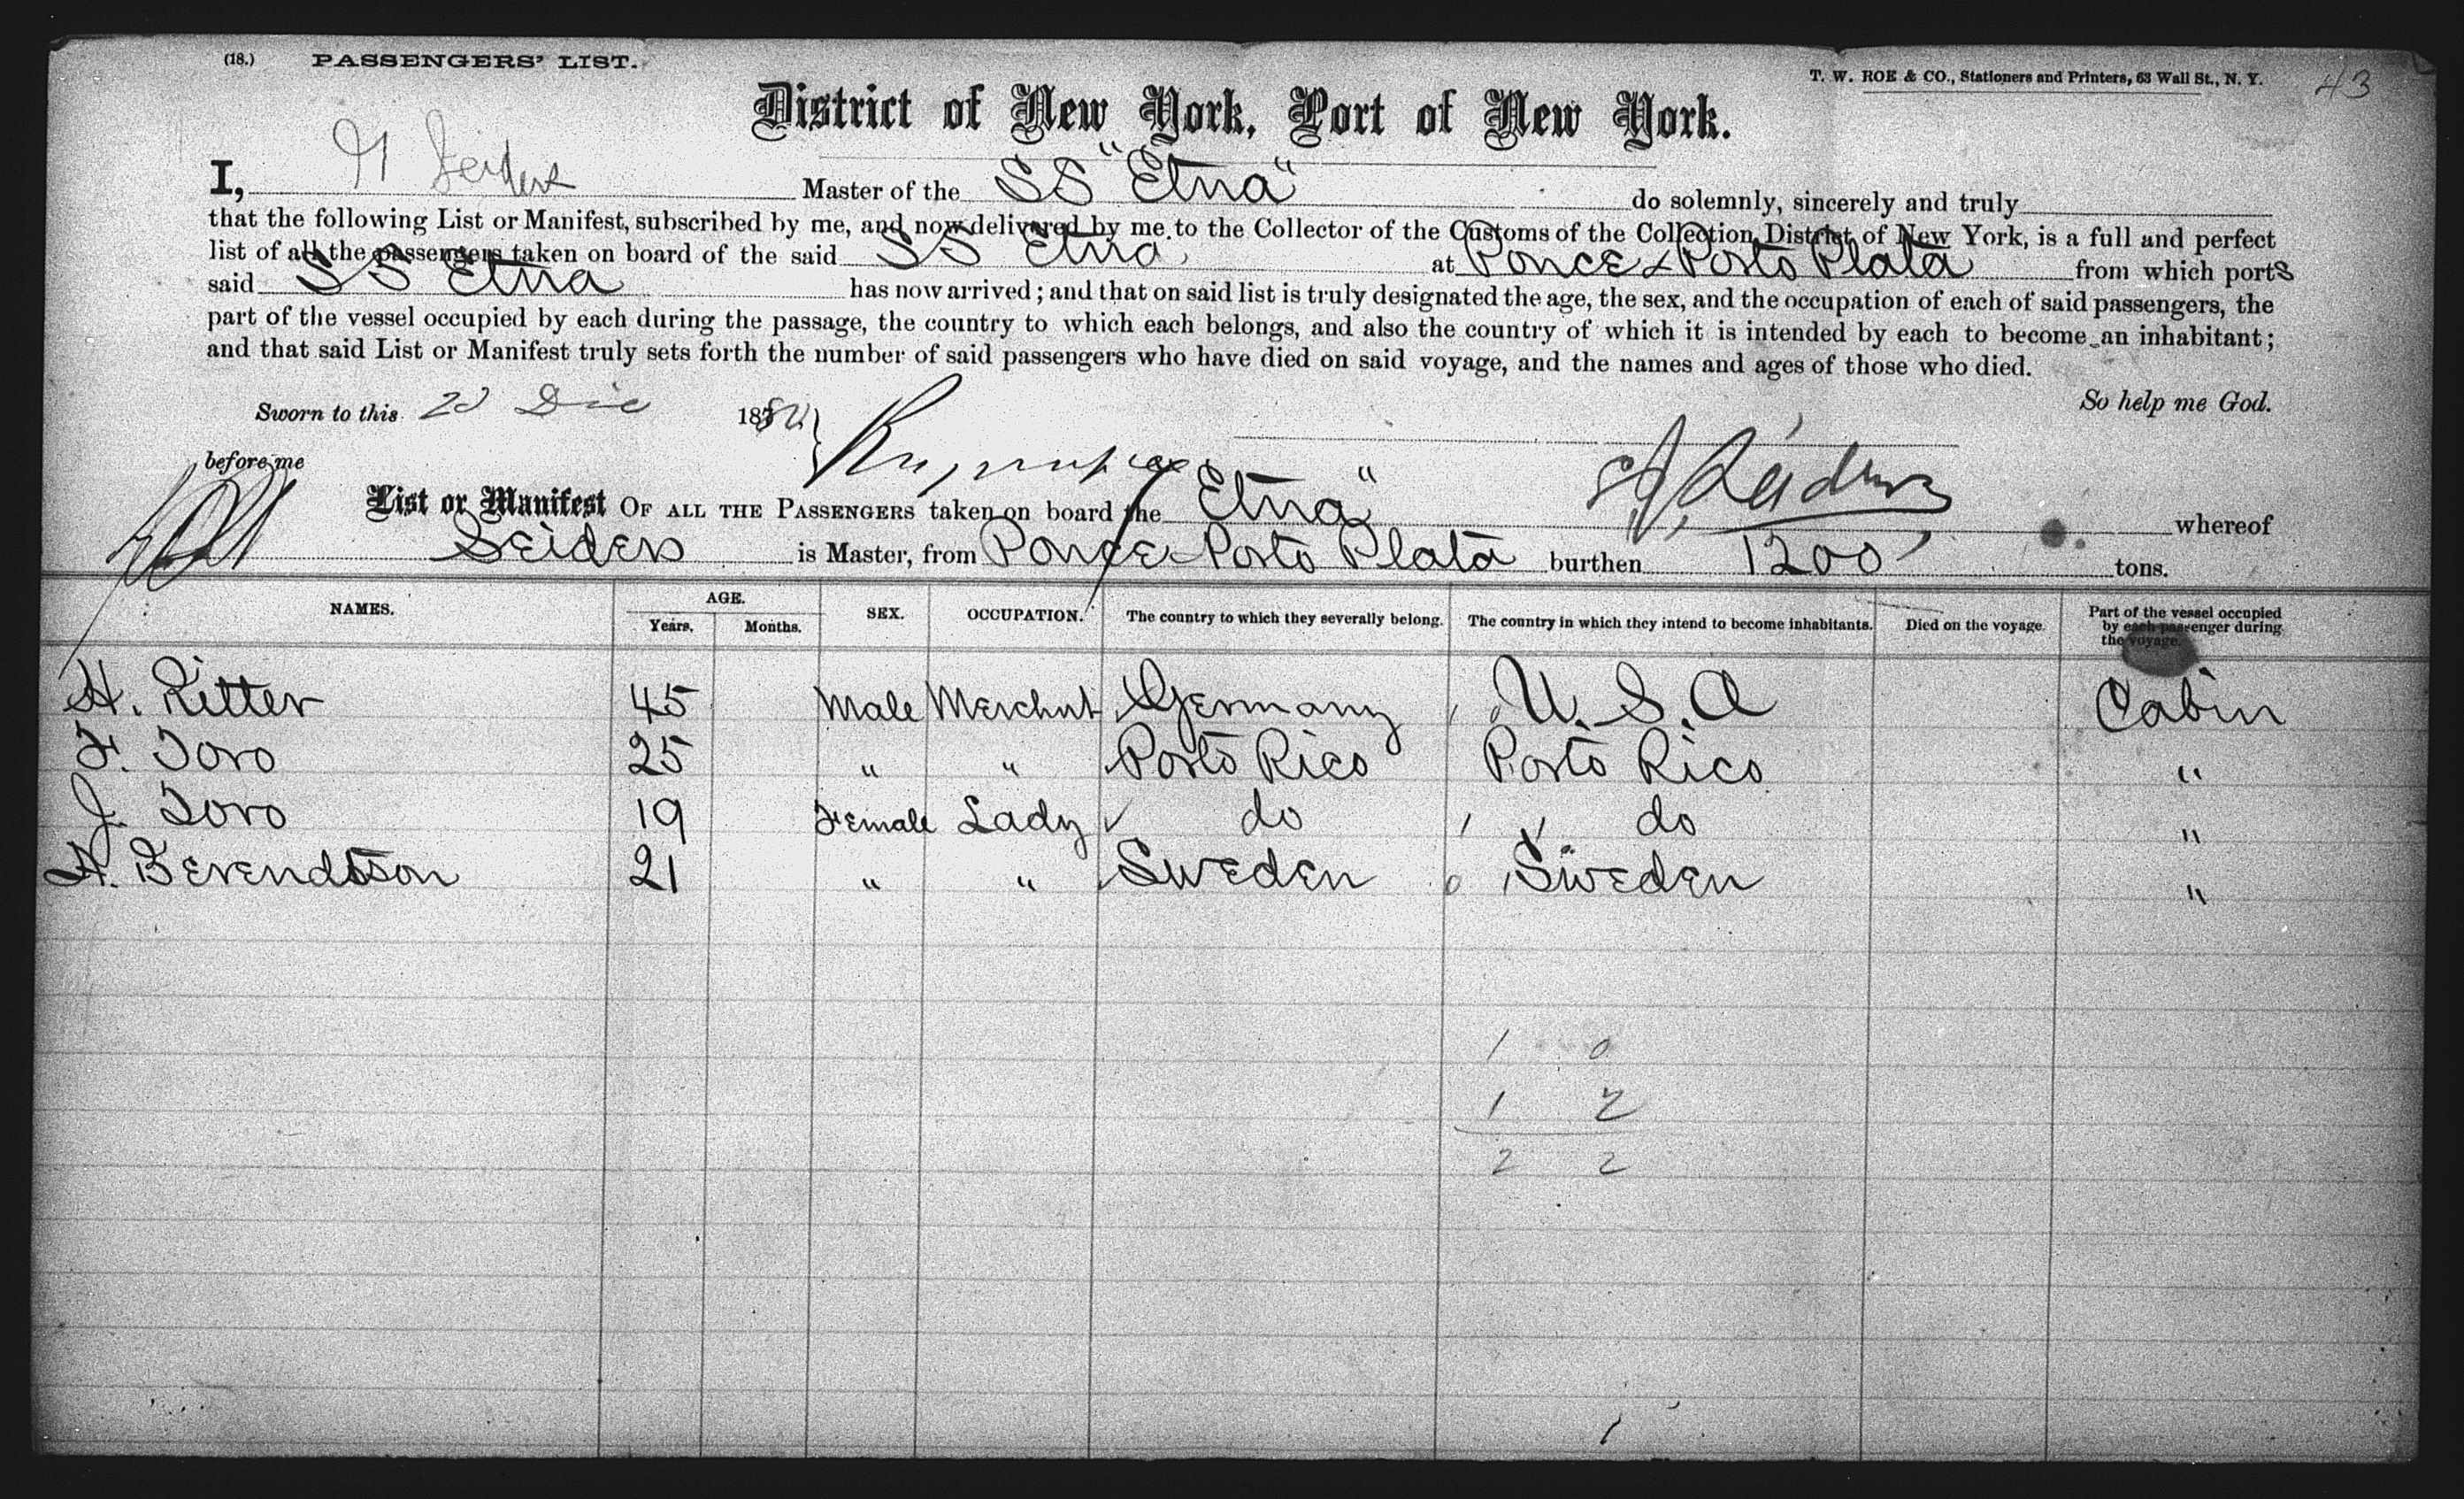 (18.) PASSENGERS' LIST.
T. W. ROE & CO., Stationers and Printers, 63 Wall St., N. Y. 43
District of New York, Port of New York.
I, Master of the SS "Etna" do solemnly, sincerely and truly
that the following List or Manifest, subscribed by me, and now delivered by me to the Collector of the Customs of the Collection District of New York, is a full and perfect
list of all the passengers taken on board of the said SS Etna at Ponce & Porto Plata from which ports
said SS Etna has now arrived; and that on said list is truly designated the age, the sex, and the occupation of each of said passengers, the
part of the vessel occupied by each during the passage, the country to which each belongs, and also the country of which it is intended by each to become an inhabitant;
and that said List or Manifest truly sets forth the number of said passengers who have died on said voyage, and the names and ages of those who died.
Sworn to this Dec 18 So help me God.
before me
List or Manifest OF ALL THE PASSENGERS taken on board the "Etna" whereof
Seiders is Master, from Ponce & Porto Plata burthen 1200 tons.
NAMES. AGE. Years. Months. SEX. OCCUPATION. The country to which they severally belong. The country in which they intend to become inhabitants. Died on the voyage. Part of the vessel occupied by each passenger during the voyage.
H. Ritter 45 Male Merchnt Germany U.S.A Cabin
F. Toro 25 " " Porto Rico Porto Rico "
J. Toro 19 Female Lady do do "
A. Berendtson 21 " " Sweden Sweden "
1 0
1 2
2 2
1